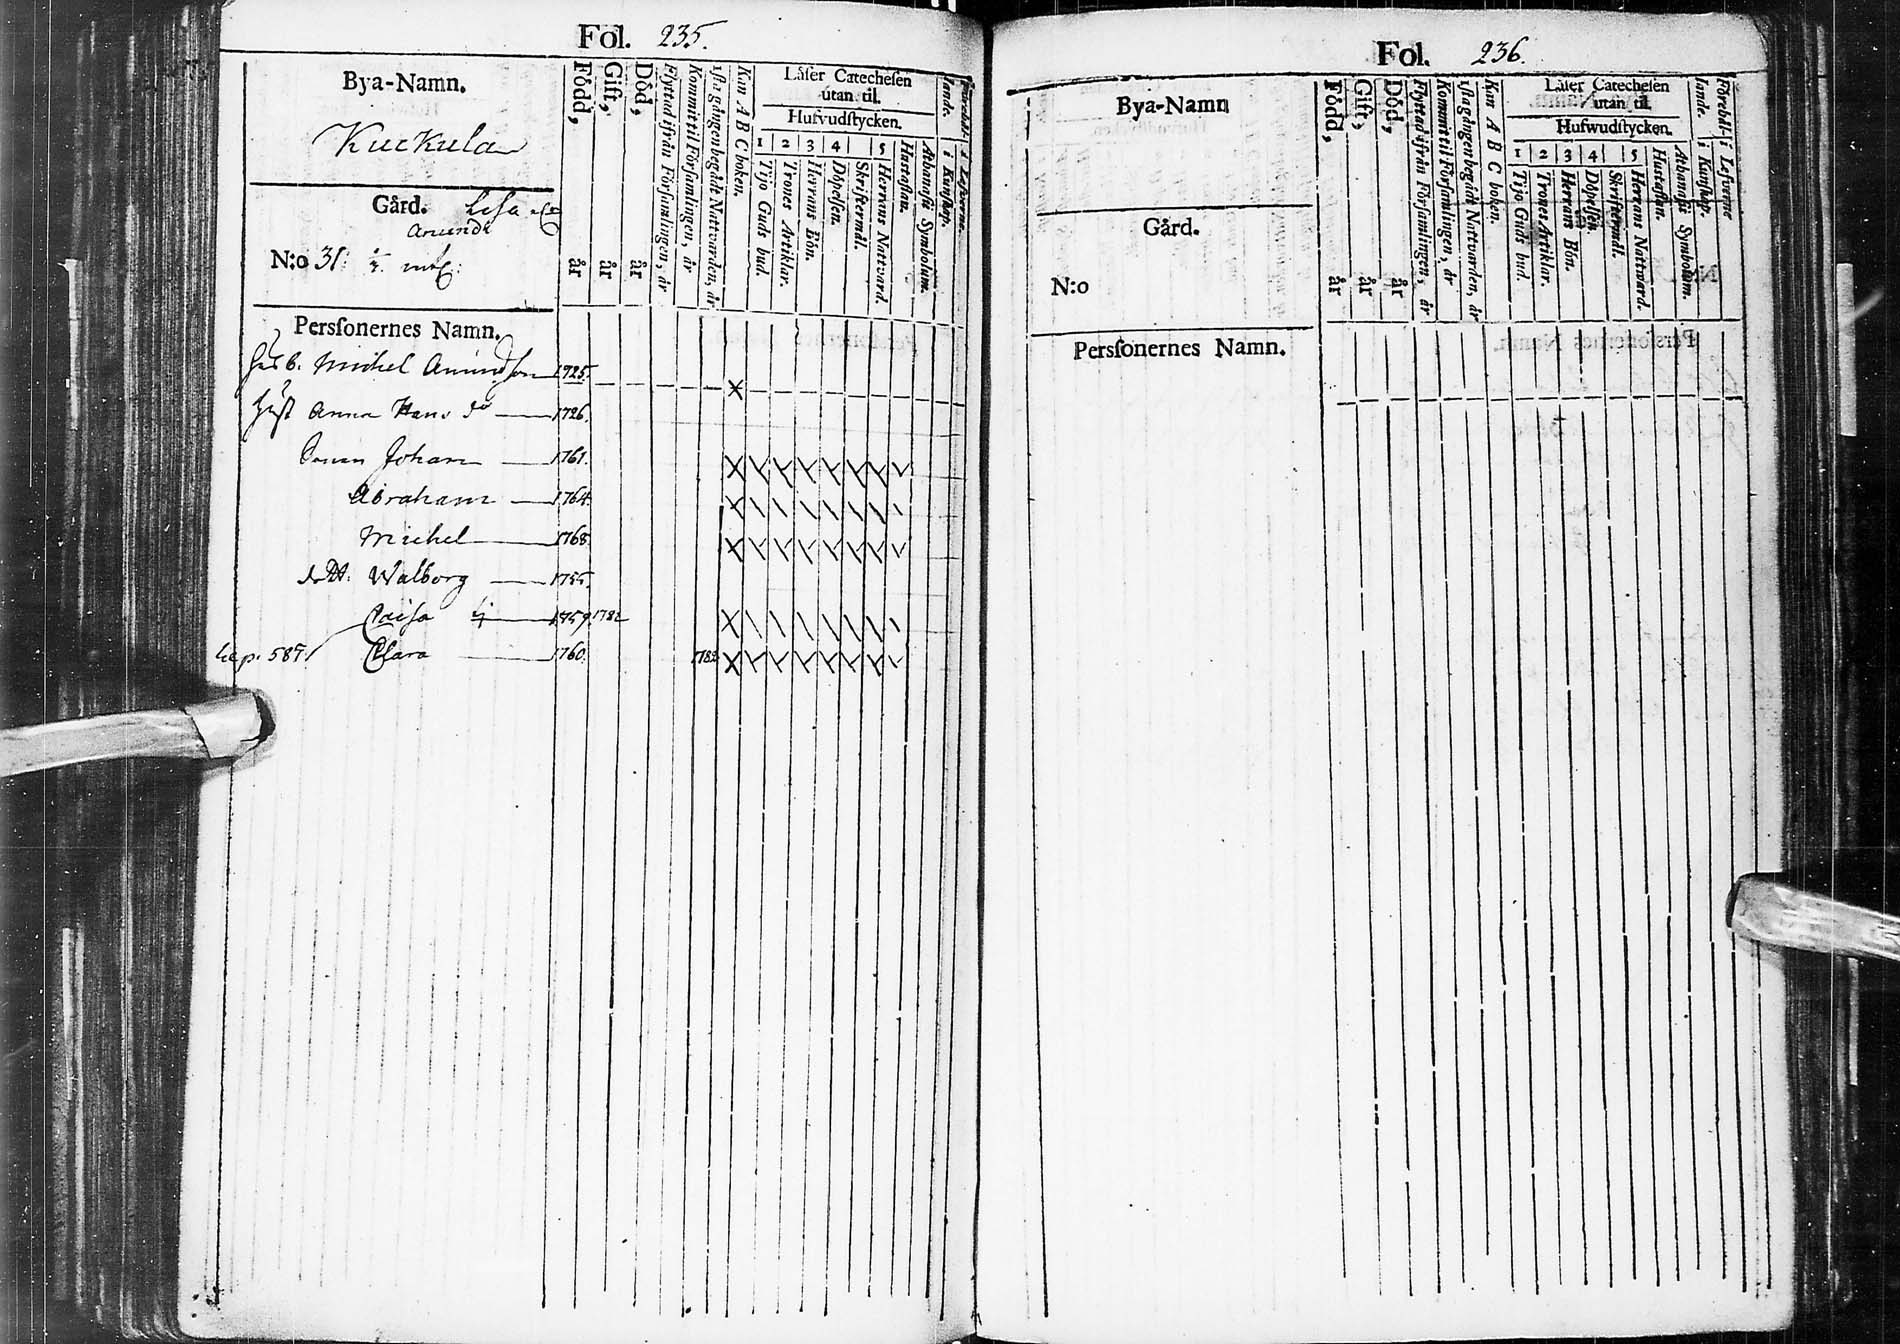 Fol. 235.
Bya-Namn.
Kuckula
Gård. Lisa
Anunde
N:o 31.
Persſonernes Namn.
Född, år
Gift, år
Död, år
Flyttad ifrån Förſamlingen, år
Kommit til Förſamlingen, år
1ſta gången begådt Nattvarden, år
Kan A B C boken.
Låſer Catecheſen
utan til.
Hufvudſtycken.
1 2 3 4 5
Tijo Guds bud.
Trones Artiklar.
Herrans Bön.
Döpelſen.
Skriftermål.
Herrans Nattvard.
Huſtaflan.
Athanaſii Symbolum.
i Kunſkap.
i Lefverne.
Husb. Michel Anundsson 1725.
Hust Anna Hans do 1726.
Sonen Johan 1761.
Abraham 1764.
Michel 1768.
dott. Walborg 1755.
Caisa 1759. 1782
Clara 1760. 1782
Fol. 236.
Bya-Namn
Gård.
N:o
Persſonernes Namn.
Född, år
Gift, år
Död, år
Flyttad ifrån Förſamlingen, år
Kommit til Förſamlingen, år
1ſta gången begådt Nattvarden, år
Kan A B C boken.
Låſer Catecheſen
utan til.
Hufwudſtycken.
1 2 3 4 5
Tijo Guds bud.
Trones Artiklar.
Herrans Bön.
Döpelſen.
Skriftermål.
Herrans Nattvard.
Huſtaflan.
Athanaſii Symbolum.
Förehållande.
i Kunſkap.
i Lefverne